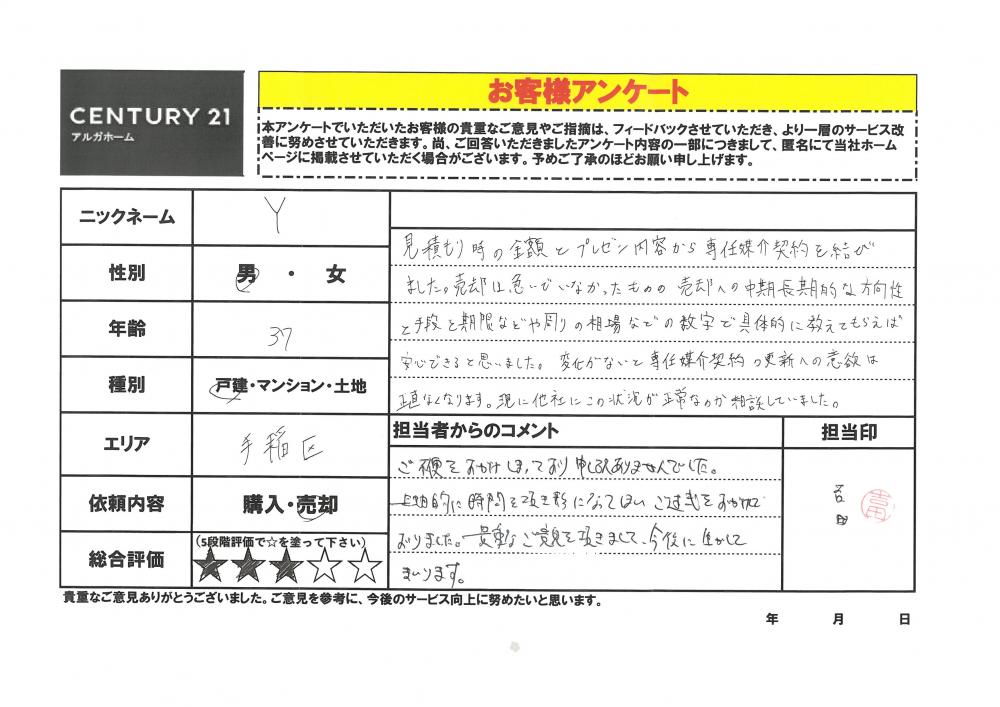 CENTURY 21
アルガホーム
お客様アンケート
本アンケートでいただいたお客様の貴重なご意見やご指摘は、フィードバックさせていただき、より一層のサービス改
善に努めさせていただきます。尚、ご回答いただきましたアンケート内容の一部につきまして、匿名にて当社ホーム
ページに掲載させていただく場合がございます。予めご了承のほどお願い申し上げます。
ニックネーム
Y
性別
男 ・ 女
年齢
37
種別
戸建・マンション・土地
エリア
手稲区
依頼内容
購入・売却
総合評価
(5段階評価で☆を塗って下さい)
★★★☆☆
見積もり時の金額とプレゼン内容から専任媒介契約を結び
ました。売却は急いでいなかったものの 売却への中期長期的な方向性
と手段と期限などや周りの相場などの数字で具体的に教えてもらえば
安心できると思いました。 変化がないと専任媒介契約の更新への意欲は
正直なくなります。現に他社にこの状況が正常なのか相談していました。
担当者からのコメント
担当印
ご不便をおかけしまっており申し訳ありませんでした。
的に時間を頂き形になってしまい ご迷惑をおかけして
おりました。貴重なご意見を頂きまして、今後に生かして
まいります。
貴重なご意見ありがとうございました。ご意見を参考に、今後のサービス向上に努めたいと思います。
年 月 日